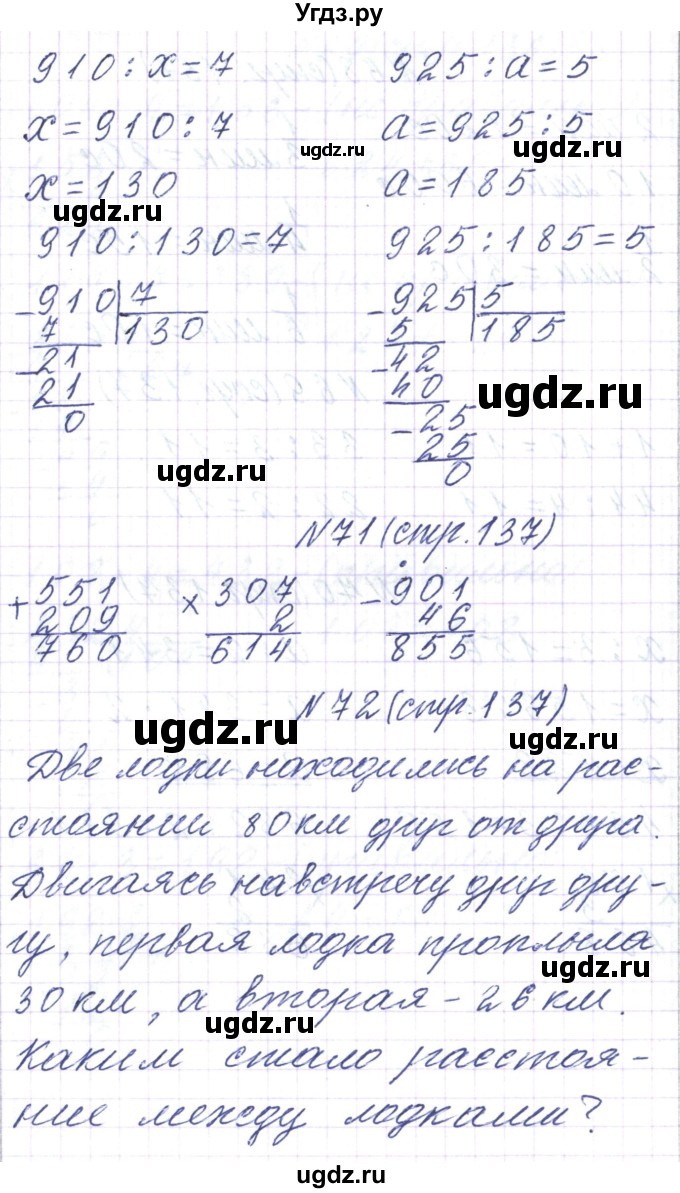 Угдз.ру
910 : x = 7    925 : a = 5
x = 910 : 7    a = 925 : 5
ugdz.ru ugdz.ru
x = 130    a = 185
ugdz.ru ugdz.ru
910 : 130 = 7    925 : 185 = 5
- 910 | 7    - 925 | 5
7    130    5    185
ugdz.ru
- 21    - 42
21    40
ugdz.ru
0    - 25
25
ugdz.ru
0
N 71 (стр. 137)
+ 551    × 307    - 901
209    2    46
760    614    855
ugdz.ru
N 72 (стр. 137)
ugdz.ru
Две лодки находились на рас-
стоянии 80 км друг от друга.
ugdz.ru
Двигаясь навстречу друг дру-
гу, первая лодка проплыла
ugdz.ru
30 км, а вторая - 26 км.
ugdz.ru
Каким стало расстоя-
ние между лодками?
ugdz.ru